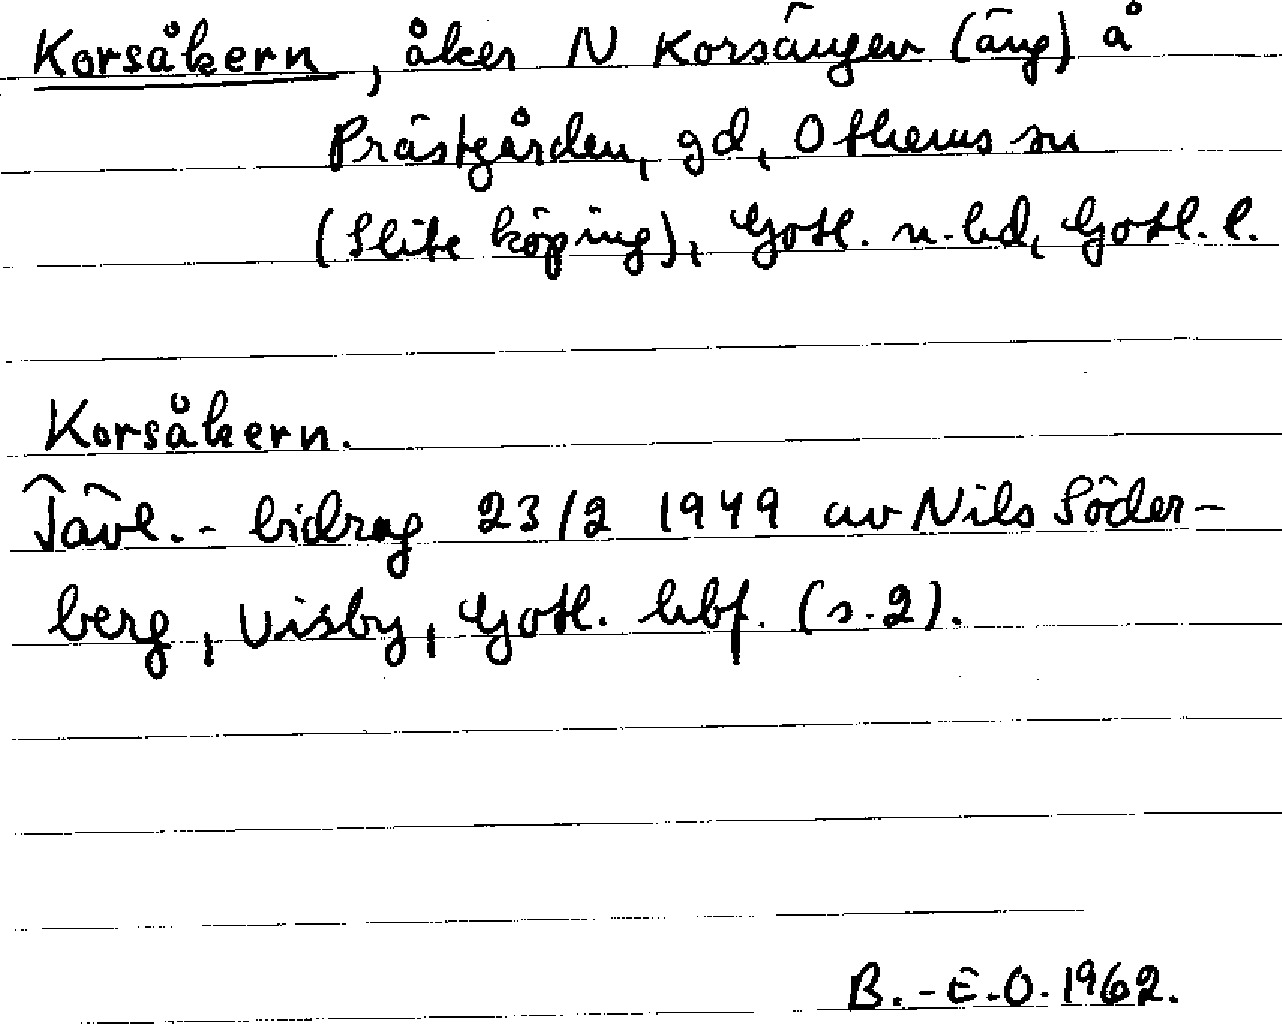 Korsåkern, åker N Korsängen (äng) å
Prästgården, gd, Othems sn
(Slite köping), Gotl. n. hd, Gotl. l.
Korsåkern.
Tävl.-bidrag 23/2 1949 av Nils Söder-
berg, Visby, Gotl. hbf. (s. 2).
B.-E.O. 1962.